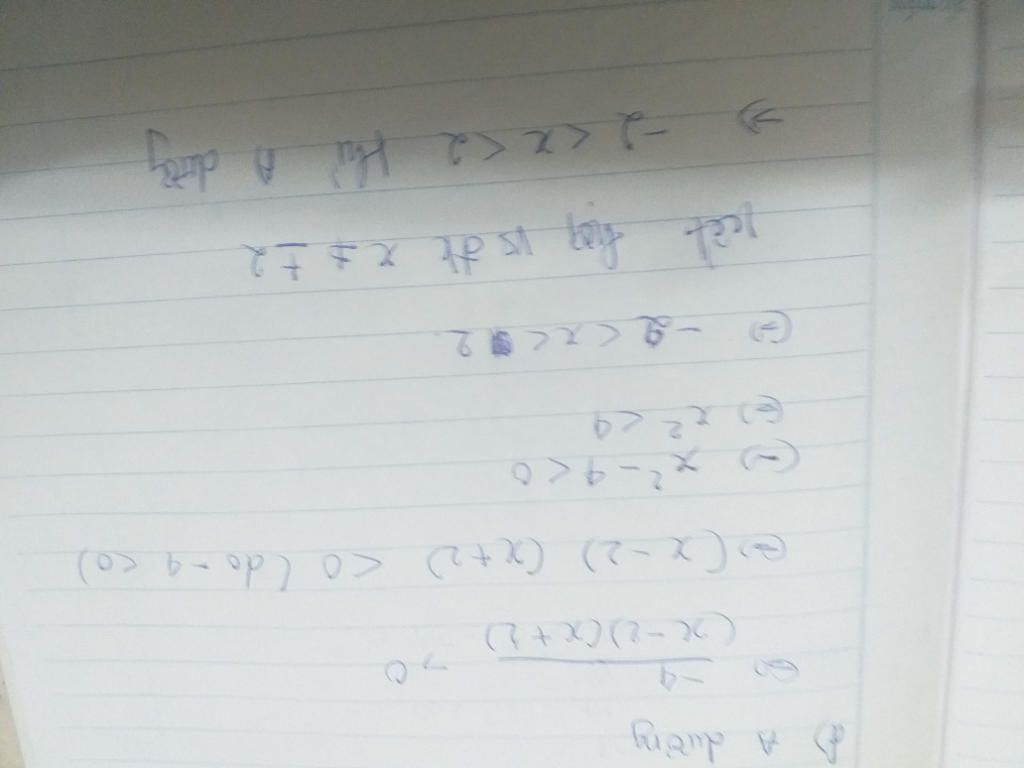 d) A dương
<=> -4 / (x-2)(x+2) > 0
<=> (x-2) (x+2) < 0 (do -4 < 0)
<=> x² - 4 < 0
<=> x² < 4
<=> -2 < x < 2
kết hợp vs đk x ≠ ± 2
=> -2 < x < 2 thì A dương